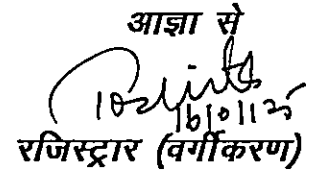 आज्ञा से
16/01/25
रजिस्ट्रार (वर्गीकरण)